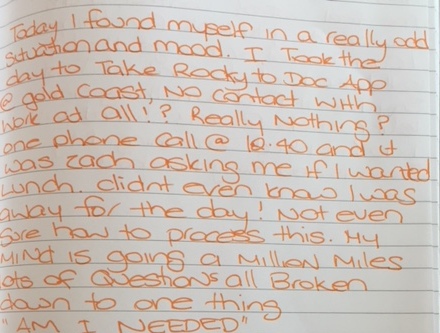 Today I found myself in a really odd
situation and mood. I Took the
day to Take Rocky to Doc App
@ gold Coast, NO Contact with
work ad all!? Really Nothing?
one phone call @ 12.40 and it
was zach asking me if I wanted
Lunch. didnt even know I was
away for the day! Not even
Sore how to process this. My
MIND is going a Million Miles
ots of Questions all Broken
down to one thing
"AM I NEEDED"